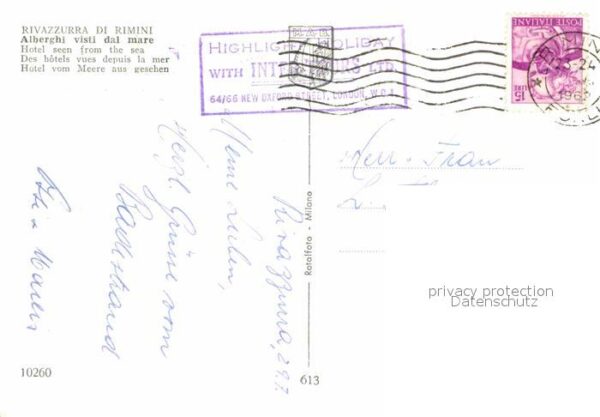 RIVAZZURRA DI RIMINI
Alberghi visti dal mare
Hotel seen from the sea
Des hôtels vues depuis la mer
Hotel vom Meere aus gesehen
HIGHLIGHT HOLIDAY
WITH INTER TOURS LTD.
64/66 NEW OXFORD STREET, LONDON, W.C.1
POSTE ITALIANE
15 LIRE
Rivazzurra, 29.7.
Meine Lieben,
Herzl. Grüsse vom
Badestrand
Herr - Frau
L...
Rotalfoto - Milano
privacy protection
Datenschutz
10260
613